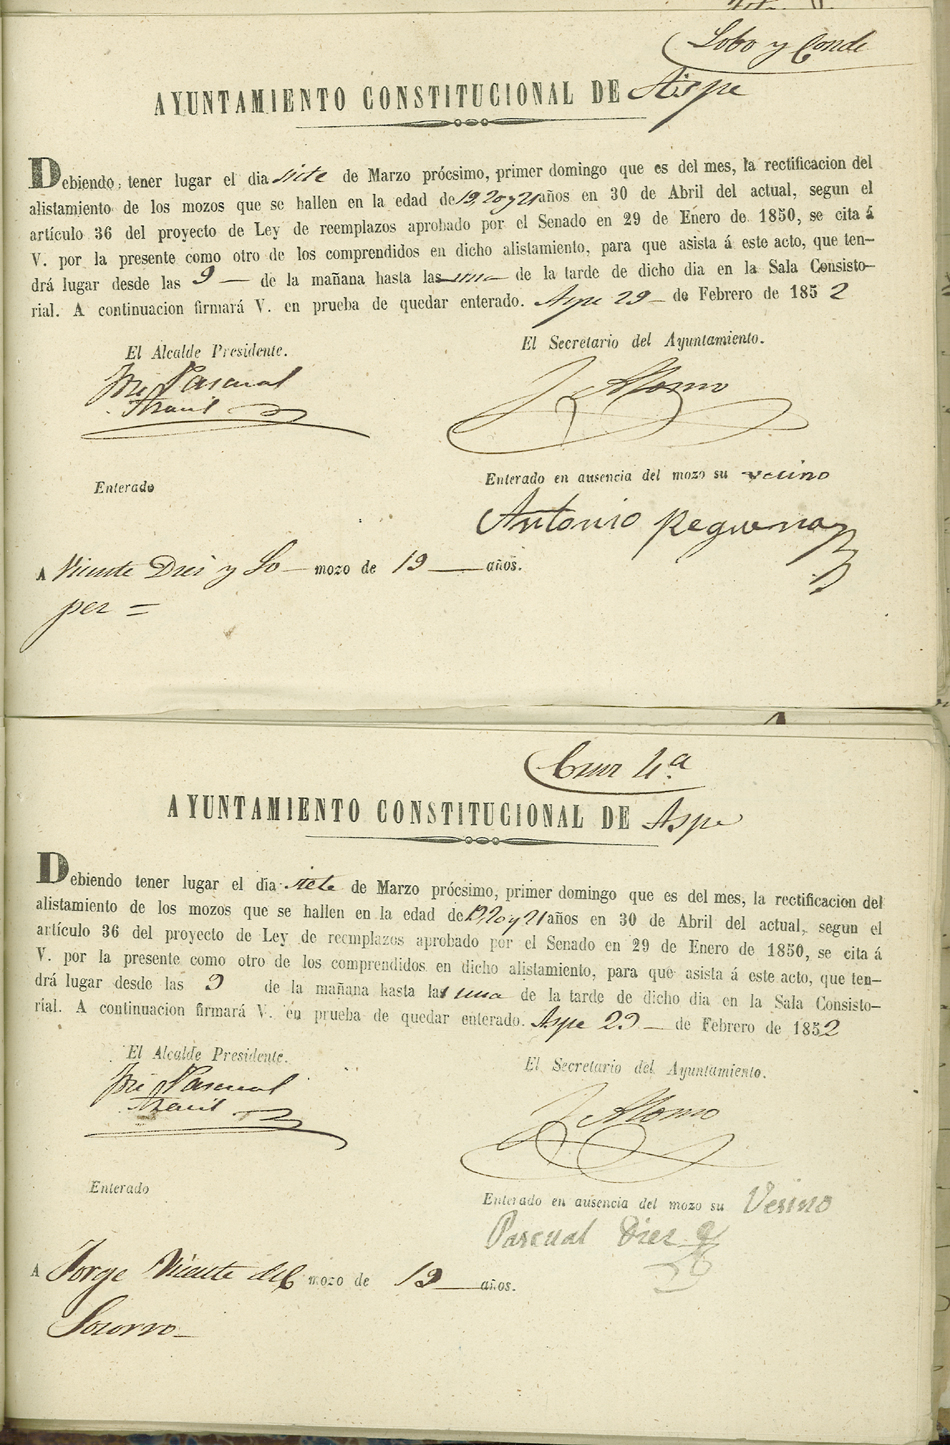 Lobo y Conde
AYUNTAMIENTO CONSTITUCIONAL DE Aspe
Debiendo tener lugar el dia siete de Marzo prócsimo, primer domingo que es del mes, la rectificacion del
alistamiento de los mozos que se hallen en la edad de 19, 20 y 21 años en 30 de Abril del actual, segun el
artículo 36 del proyecto de Ley de reemplazos aprobado por el Senado en 29 de Enero de 1850, se cita á
V. por la presente como otro de los comprendidos en dicho alistamiento, para que asista á este acto, que ten-
drá lugar desde las 9 — de la mañana hasta las una de la tarde de dicho dia en la Sala Consisto-
rial. A continuacion firmará V. en prueba de quedar enterado. Aspe 29 — de Febrero de 1852
El Alcalde Presidente.
El Secretario del Ayuntamiento.
Pascual
Alonso
Enterado
Enterado en ausencia del mozo su vecino
Antonio Requena
A Vicente Diez y Lo— mozo de 19 — años.
pez =
Cruz 4ª
AYUNTAMIENTO CONSTITUCIONAL DE Aspe
Debiendo tener lugar el dia siete de Marzo prócsimo, primer domingo que es del mes, la rectificacion del
alistamiento de los mozos que se hallen en la edad de 19 20 y 21 años en 30 de Abril del actual, segun el
artículo 36 del proyecto de Ley de reemplazos aprobado por el Senado en 29 de Enero de 1850, se cita á
V. por la presente como otro de los comprendidos en dicho alistamiento, para que asista á este acto, que ten-
drá lugar desde las 9 de la mañana hasta las una de la tarde de dicho dia en la Sala Consisto-
rial. A continuacion firmará V. en prueba de quedar enterado. Aspe 29 — de Febrero de 1852
El Alcalde Presidente.
El Secretario del Ayuntamiento.
Pascual
Alonso
Enterado
Enterado en ausencia del mozo su Vesino
Pascual Diez
A Jorge Vicente del mozo de 19 — años.
Socorro